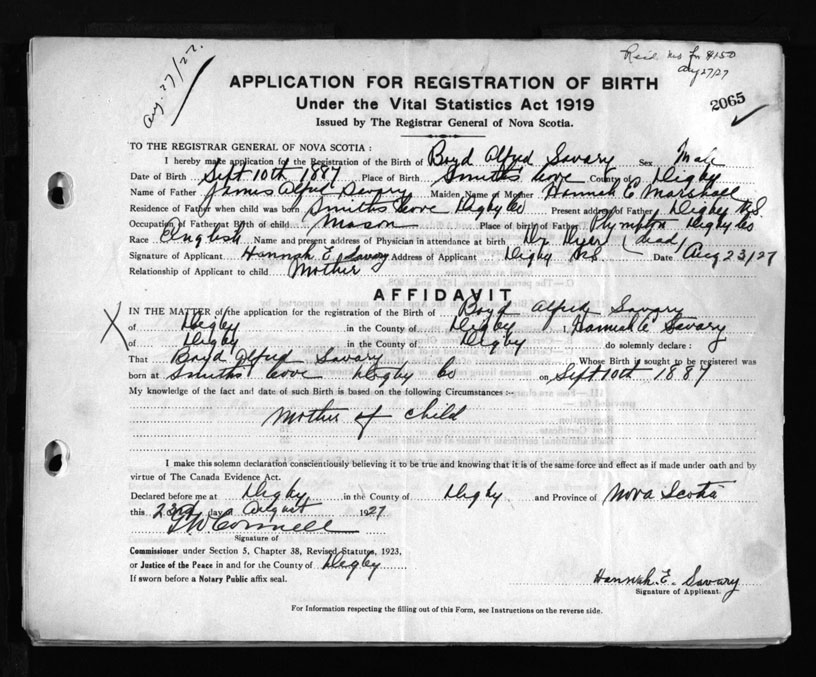 Aug. 27/27.
Aug 27/27
2065
APPLICATION FOR REGISTRATION OF BIRTH
Under the Vital Statistics Act 1919
Issued by The Registrar General of Nova Scotia.
TO THE REGISTRAR GENERAL OF NOVA SCOTIA :
I hereby make application for the Registration of the Birth of Boyd Alfred Savary Sex Male
Date of Birth Sept 10th 1887 Place of Birth Smith's Cove County of Digby
Name of Father James Alfred Savary Maiden Name of Mother Hannah E Marshall
Residence of Father when child was born Smiths Cove Digby Co Present address of Father Digby N.S.
Occupation of Father at Birth of child Mason Place of birth of Father Plympton Digby Co
Race English Name and present address of Physician in attendance at birth Dr. (dead)
Signature of Applicant Hannah E. Savary Address of Applicant Digby NS Date Aug 23/27
Relationship of Applicant to child Mother
AFFIDAVIT
X IN THE MATTER of the application for the registration of the Birth of Boyd Alfred Savary
of Digby in the County of Digby I, Hannah E Savary
of Digby in the County of Digby do solemnly declare :
That Boyd Alfred Savary Whose Birth is sought to be registered was
born at Smiths Cove Digby Co on Sept 10th 1887
My knowledge of the fact and date of such Birth is based on the following Circumstances :-
Mother of Child
I make this solemn declaration conscientiously believing it to be true and knowing that it is of the same force and effect as if made under oath and by
virtue of The Canada Evidence Act.
Declared before me at Digby in the County of Digby and Province of Nova Scotia
this 23rd day of August 1927
Signature of
Commissioner under Section 5, Chapter 38, Revised Statutes, 1923,
or Justice of the Peace in and for the County of Digby
If sworn before a Notary Public affix seal.
Hannah E. Savary
Signature of Applicant.
For Information respecting the filling out of this Form, see Instructions on the reverse side.